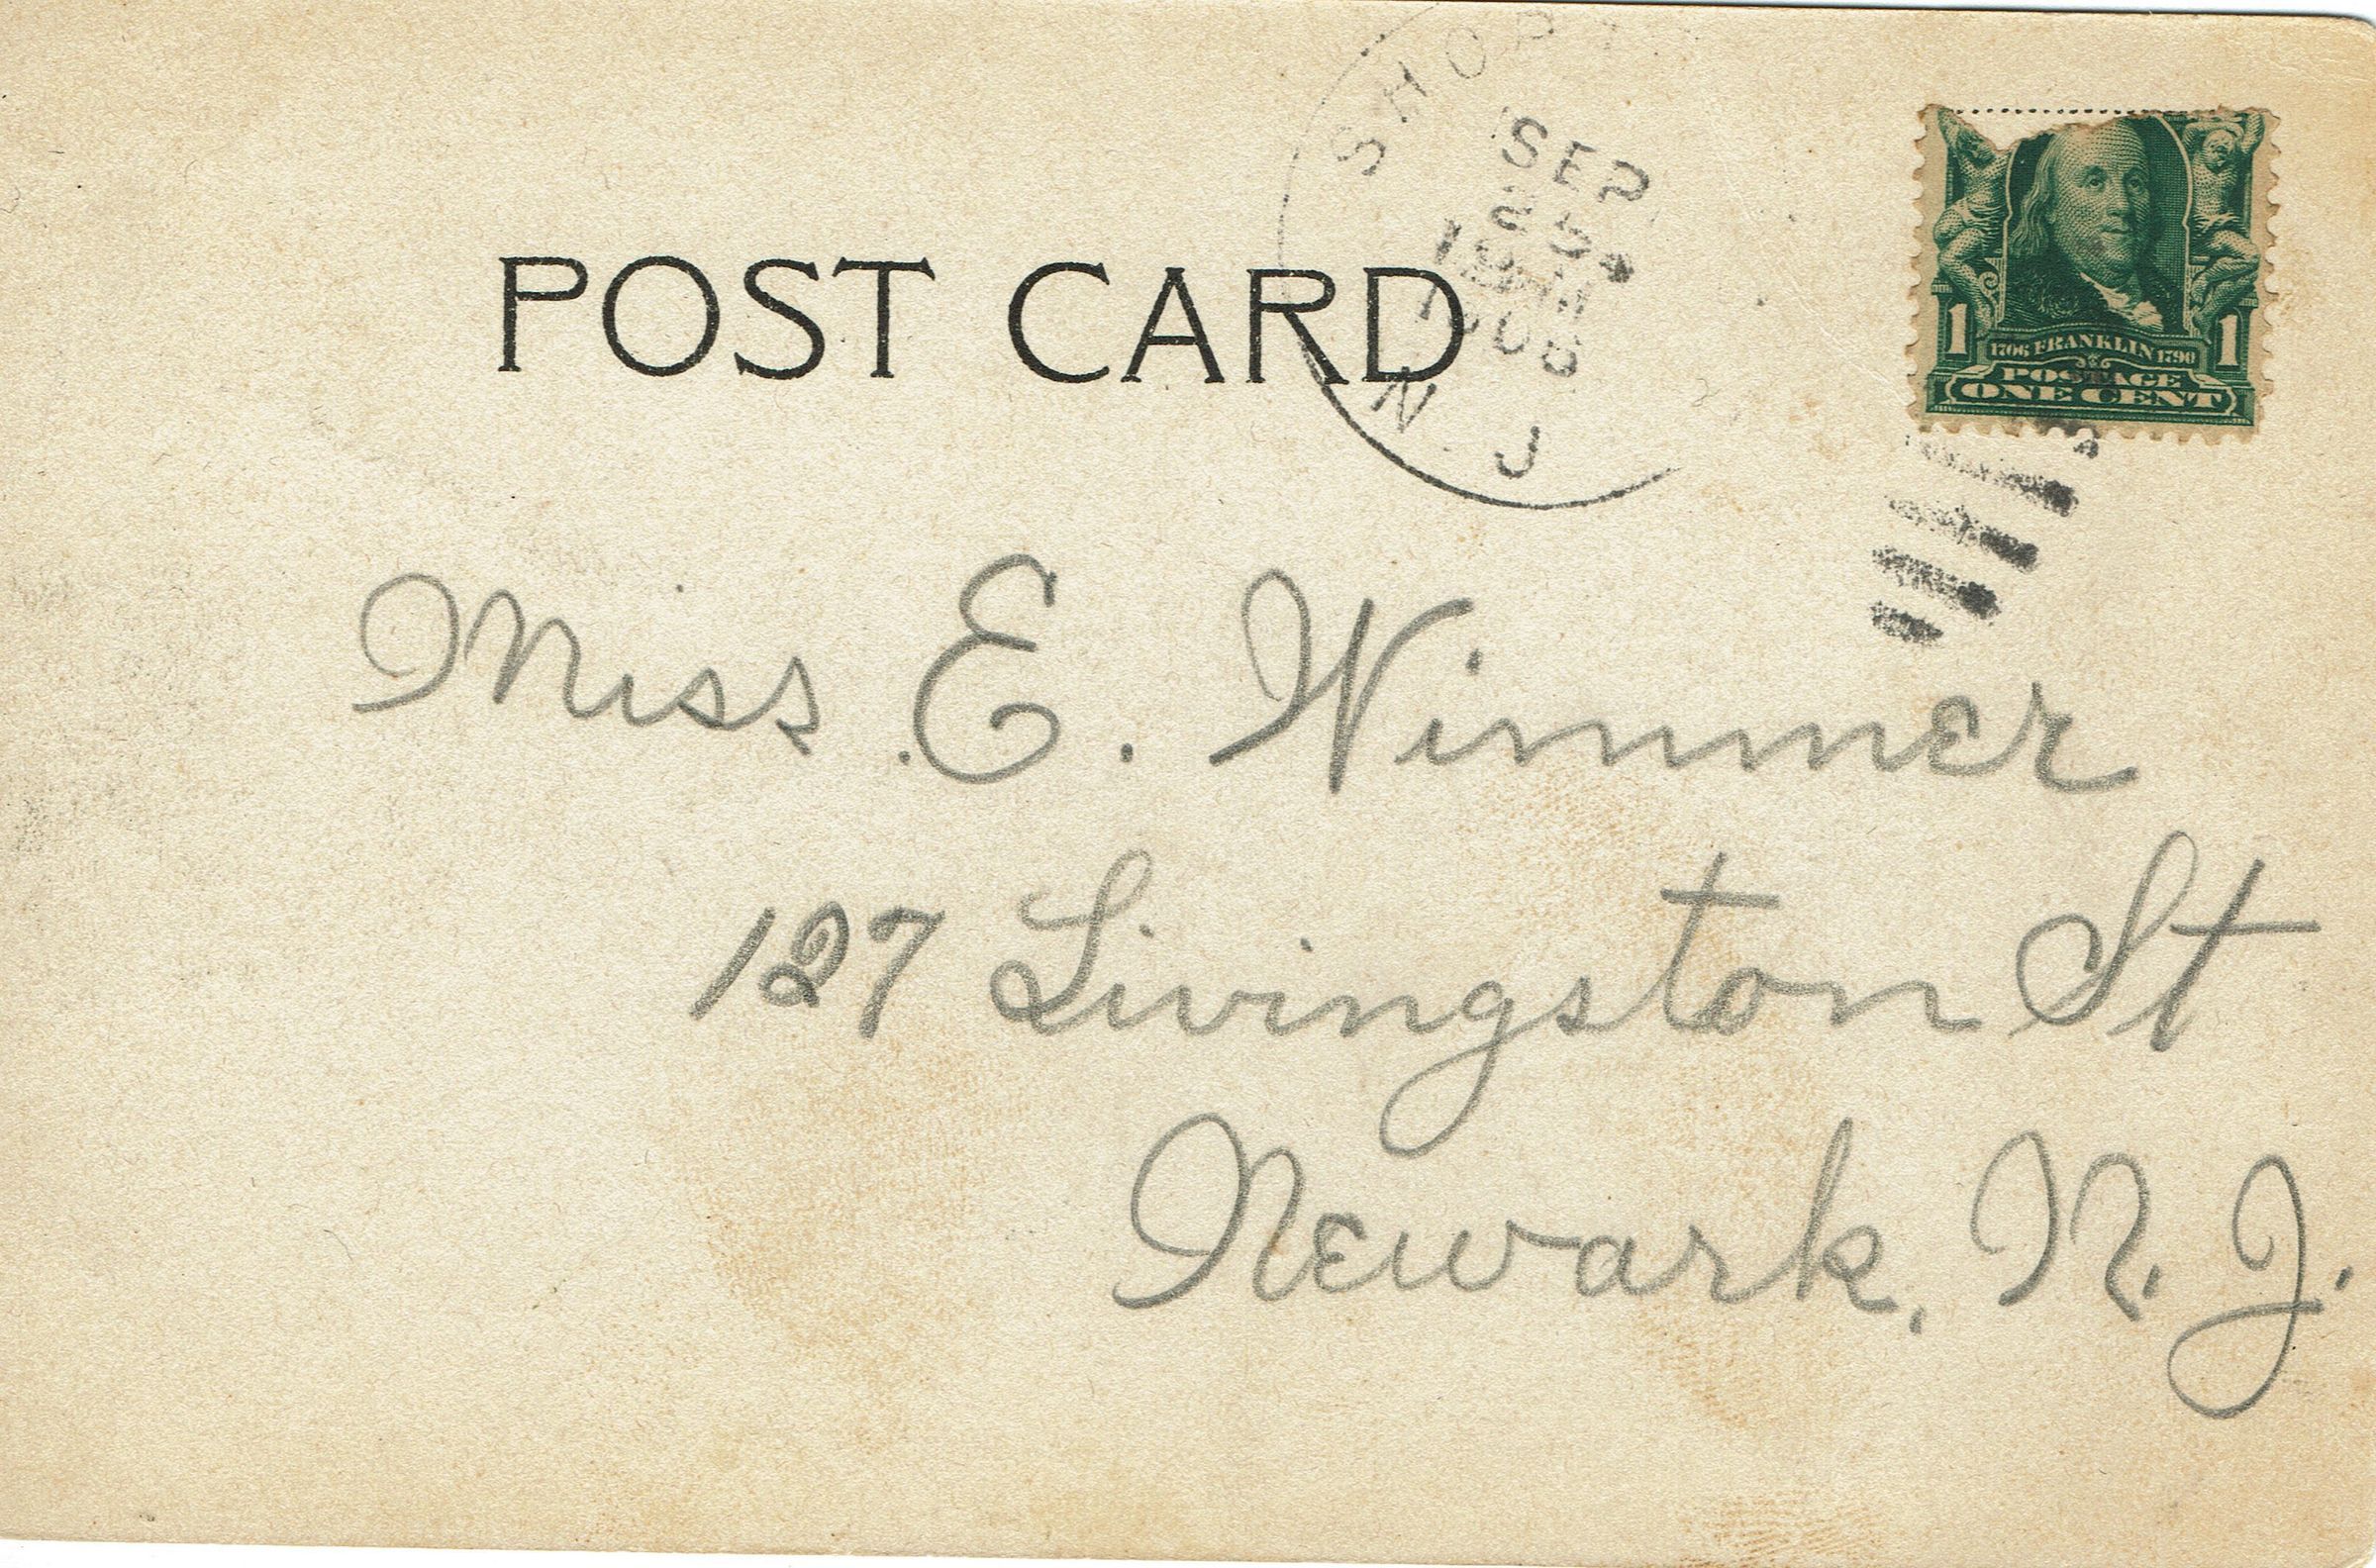 SHORT
SEP
25
N. J
POST CARD
1 1
1706 FRANKLIN 1790
POSTAGE
ONE CENT
Miss E. Wimmer
127 Livingston St
Newark, N. J.